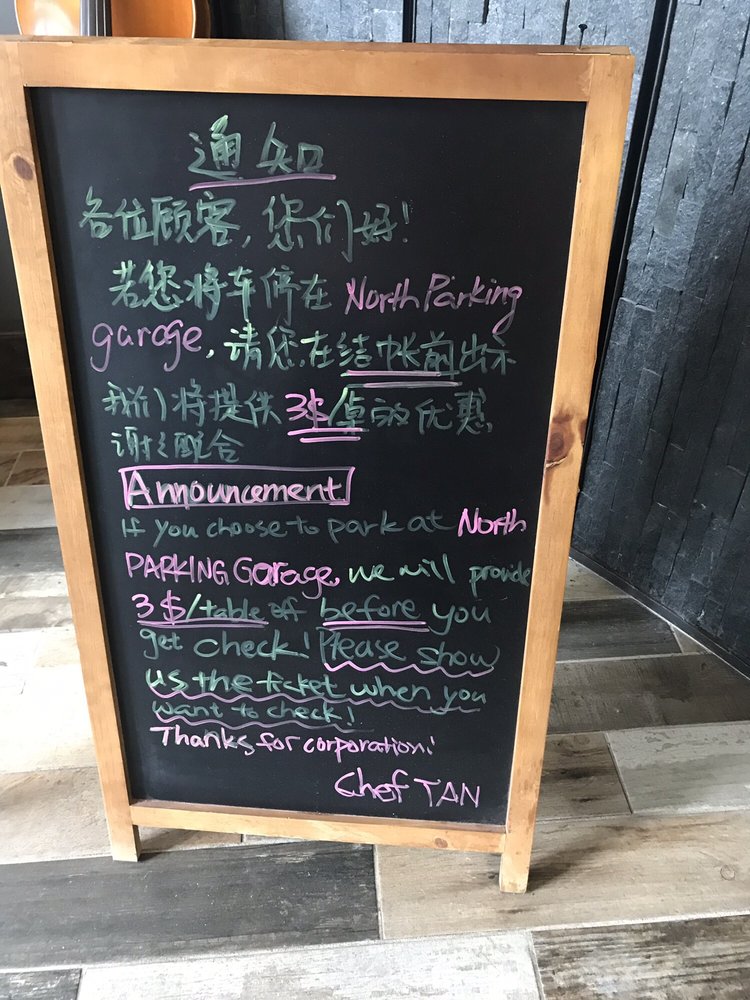 通知
各位顾客,您们好!
若您将车停在 North Parking
garage,请您在结帐前出示
我们将提供 3$/桌的优惠
谢谢配合
Announcement
If you choose to park at North
PARKING Garage, we will provide
3$/table off before you
get check! Please show
us the ticket when you
want to check!
Thanks for corporation!
Chef TAN